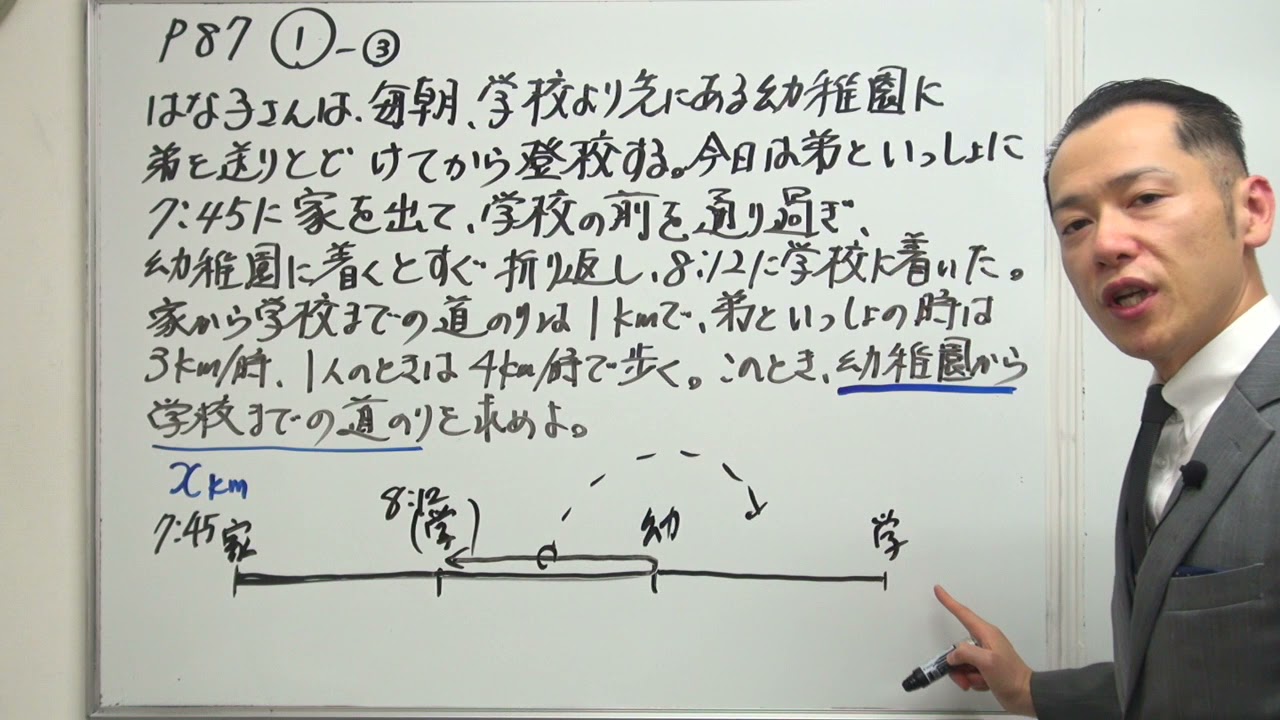 P87 ①-③
はな子さんは、毎朝、学校より先にある幼稚園に
弟を送りとどけてから登校する。今日は弟といっしょに
7:45に家を出て、学校の前を通り過ぎ、
幼稚園に着くとすぐ折り返し、8:12に学校に着いた。
家から学校までの道のりは1kmで、弟といっしょの時は
3km/時、1人のときは4km/時で歩く。このとき、幼稚園から
学校までの道のりを求めよ。
xkm
7:45家 8:12(学) 幼 学